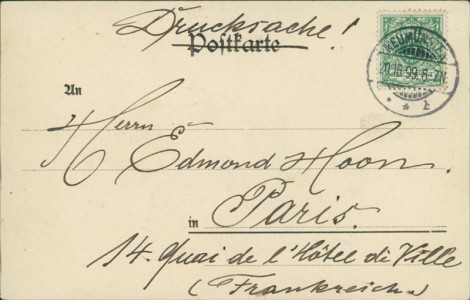 Drucksache!
Postkarte
NEUMÜNSTER
20.10.99.6-7N.
An
Herrn
Edmond Hoon.
in Paris.
14. Quai de l'Hôtel di Ville
(Frankreich.)